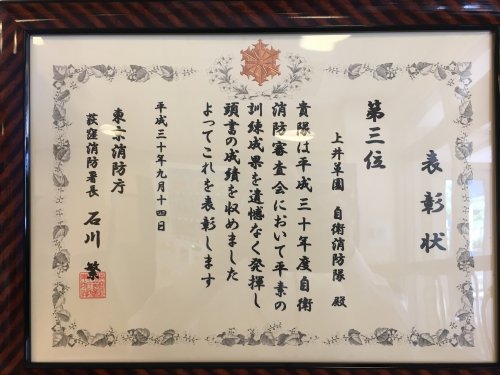 表彰状
第三位
上井草園 自衛消防隊 殿
貴隊は平成三十年度自衛
消防審査会において平素の
訓練成果を遺憾なく発揮し
頭書の成績を収めました
よってこれを表彰します
平成三十年九月十四日
東京消防庁
荻窪消防署長 石川 繁